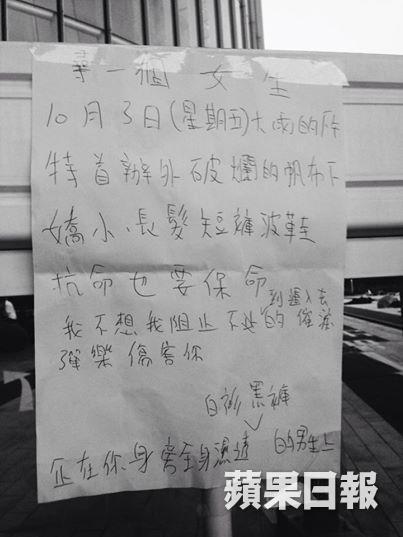 尋一個女生
10月3日(星期五)大雨的下午
特首辦外破爛的帆布下
嬌小、長髮短褲波鞋
抗命也要保命
我不想我阻止不 的催淚
彈 傷害你
白衫黑褲
企在你身旁全身濕透 的男生上
蘋果日報